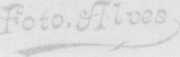 Foto. Alves